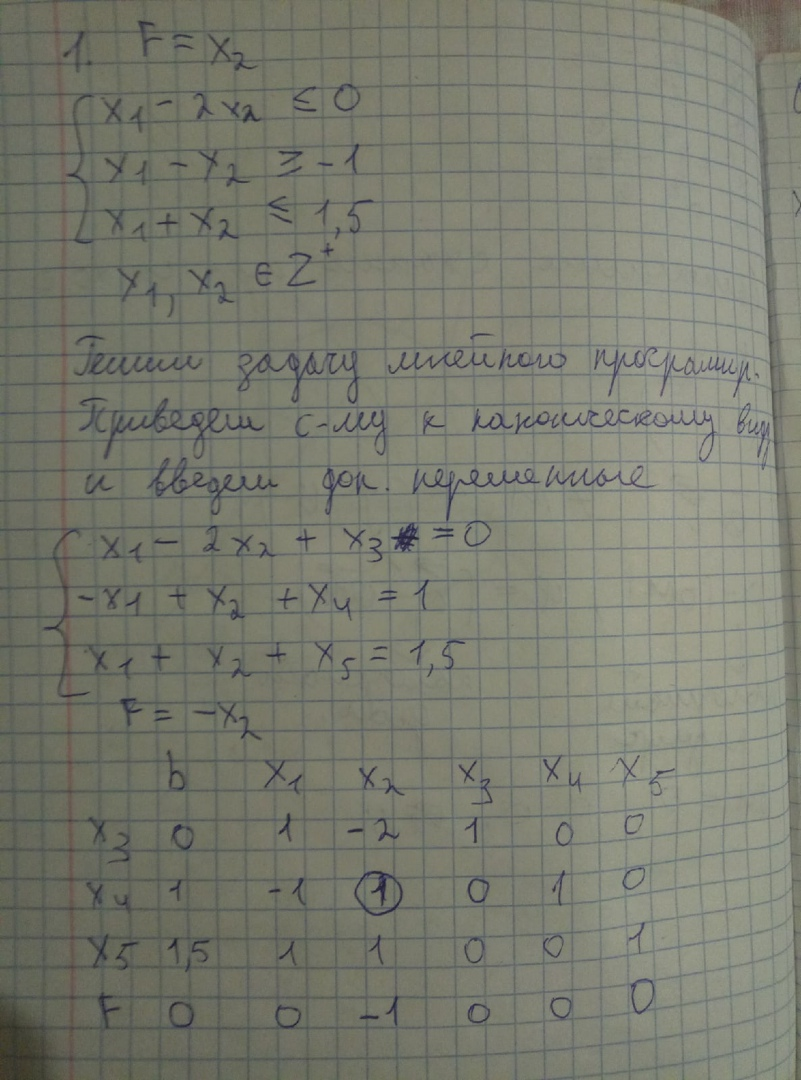 1. F = x₂
x₁ - 2x₂ ≤ 0
x₁ - x₂ ≥ -1
x₁ + x₂ ≤ 1,5
x₁, x₂ ∈ Z⁺
Решим задачу линейного програмир.
Приведем с-му к каноническому виду
и введем доп. переменные
x₁ - 2x₂ + x₃ = 0
-x₁ + x₂ + x₄ = 1
x₁ + x₂ + x₅ = 1,5
F = -x₂
b x₁ x₂ x₃ x₄ x₅
x₃ 0 1 -2 1 0 0
x₄ 1 -1 1 0 1 0
x₅ 1,5 1 1 0 0 1
F 0 0 -1 0 0 0